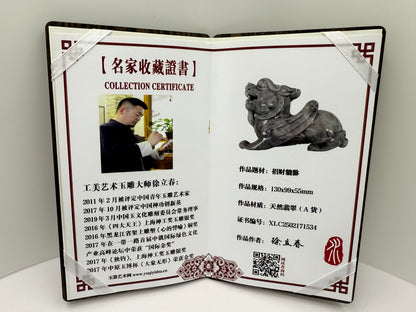 【名家收藏證書】
COLLECTION CERTIFICATE
工美艺术玉雕大师徐立春：
2011 年 2 月被评定中国青年玉雕艺术家
2017 年 10 月被评定中国神功创新英
2019 年 3 月中国玉文化雕刻委员会常务理事
2016 年《四大天王》上海神工奖玉雕银奖
2016 年黑龙江省上雕塑《心的呼喻》铜奖
2017 年在一带一路首届中俄国际绿色文化
产业高峰论坛中荣获“国际金奖”
2017 年《秋韵》，上海神工奖玉雕银奖
2017 年中原玉博杯《大象无形》荣获金奖
玉雕艺术网
作品题材：招财貔貅
作品规格：130x99x55mm
作品材质：天然翡翠（A 货）
证书编号：XLC2502171534
作品作者：徐立春